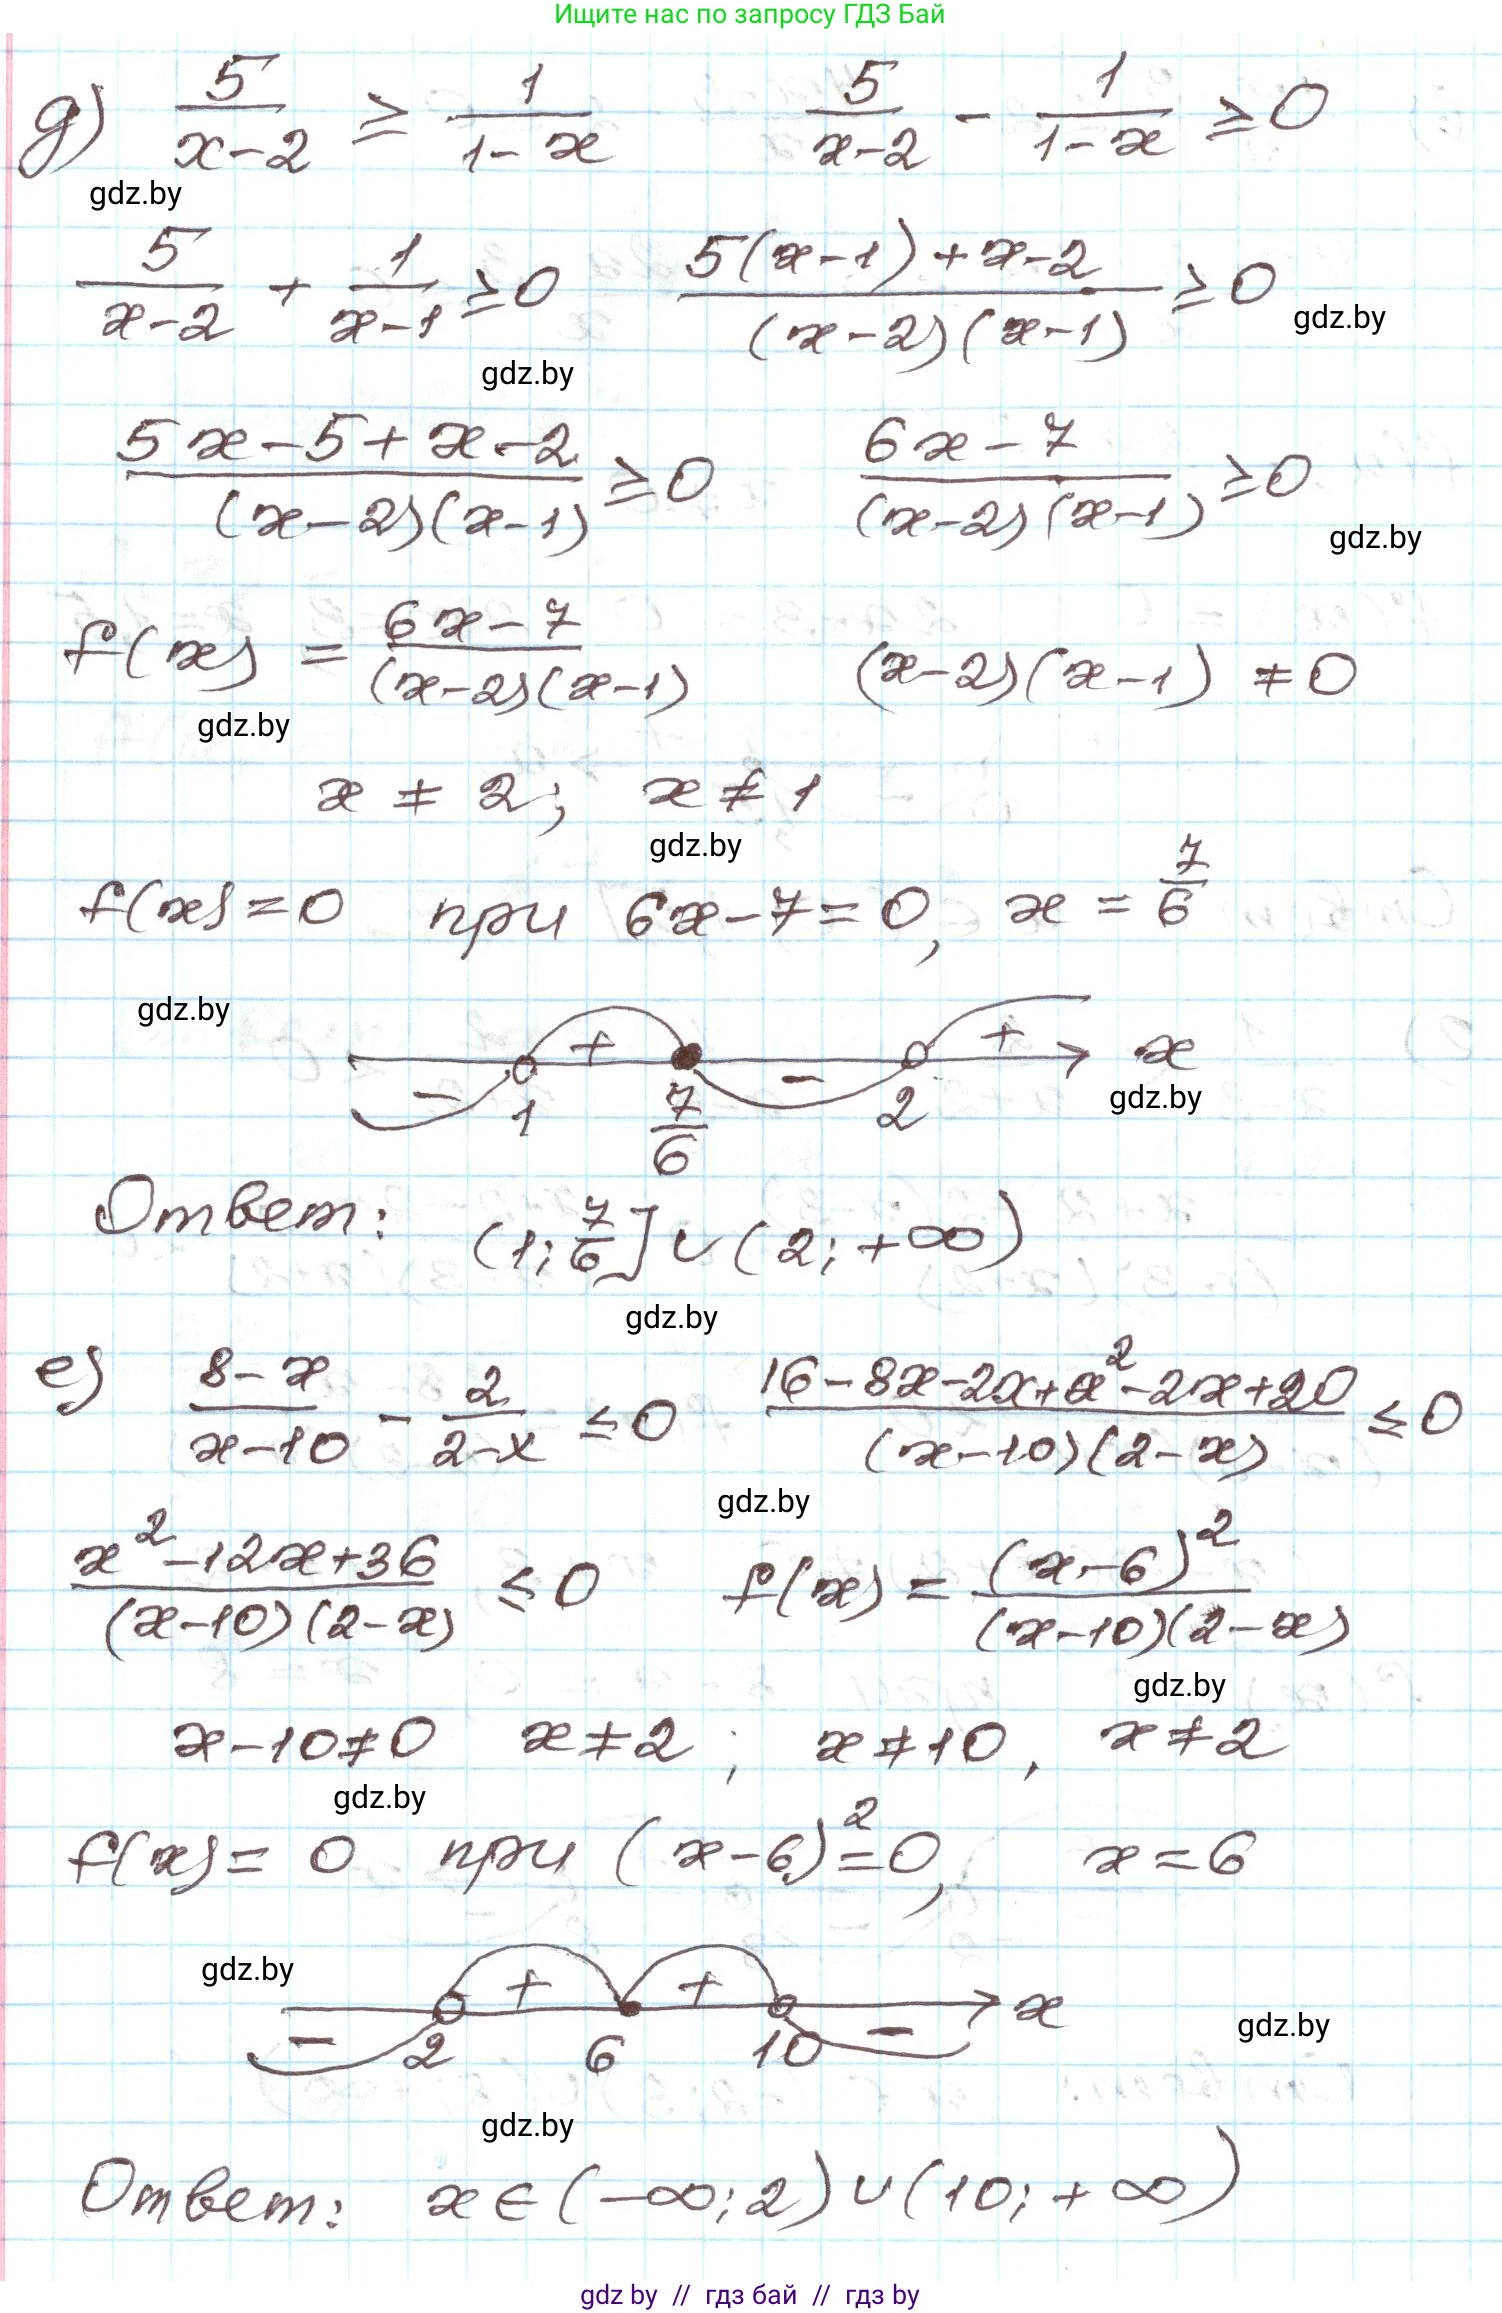 Ищите нас по запросу ГДЗ Бай
д) 5/(x-2) ≥ 1/(1-x)   5/(x-2) - 1/(1-x) ≥ 0
gdz.by
5/(x-2) + 1/(x-1) ≥ 0   (5(x-1)+x-2)/((x-2)(x-1)) ≥ 0
gdz.by
gdz.by
(5x-5+x-2)/((x-2)(x-1)) ≥ 0   (6x-7)/((x-2)(x-1)) ≥ 0
gdz.by
f(x) = (6x-7)/((x-2)(x-1))   (x-2)(x-1) ≠ 0
gdz.by
x ≠ 2; x ≠ 1
gdz.by
f(x)=0 при 6x-7=0, x = 7/6
gdz.by
- + - + x
gdz.by
1 7/6 2
Ответ: (1; 7/6] ∪ (2; +∞)
gdz.by
е) (8-x)/(x-10) - 2/(2-x) ≤ 0   (16-8x-2x+x²-2x+20)/((x-10)(2-x)) ≤ 0
gdz.by
(x²-12x+36)/((x-10)(2-x)) ≤ 0   f(x) = (x-6)²/((x-10)(2-x))
gdz.by
x-10≠0 x≠2; x≠10, x≠2
gdz.by
f(x)= 0 при (x-6)²=0, x=6
gdz.by
- + + - x
gdz.by
2 6 10
gdz.by
Ответ: x∈(-∞;2)∪(10;+∞)
gdz by // гдз бай // гдз by